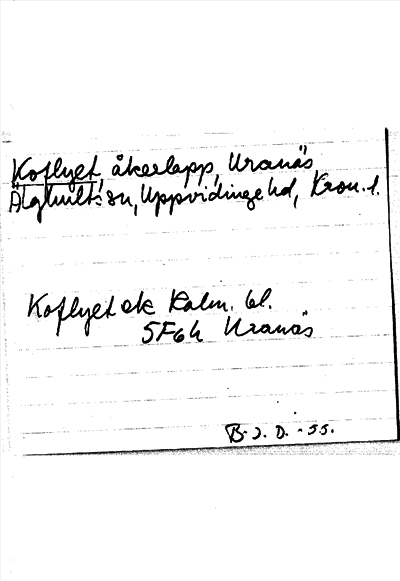 Koflyet, åkerlapp, Uranäs
Älghults sn, Uppvidinge hd, Kron. l.
Koflyet ek Kalm. bl.
5F6h Uranäs
B. J. D. -55.